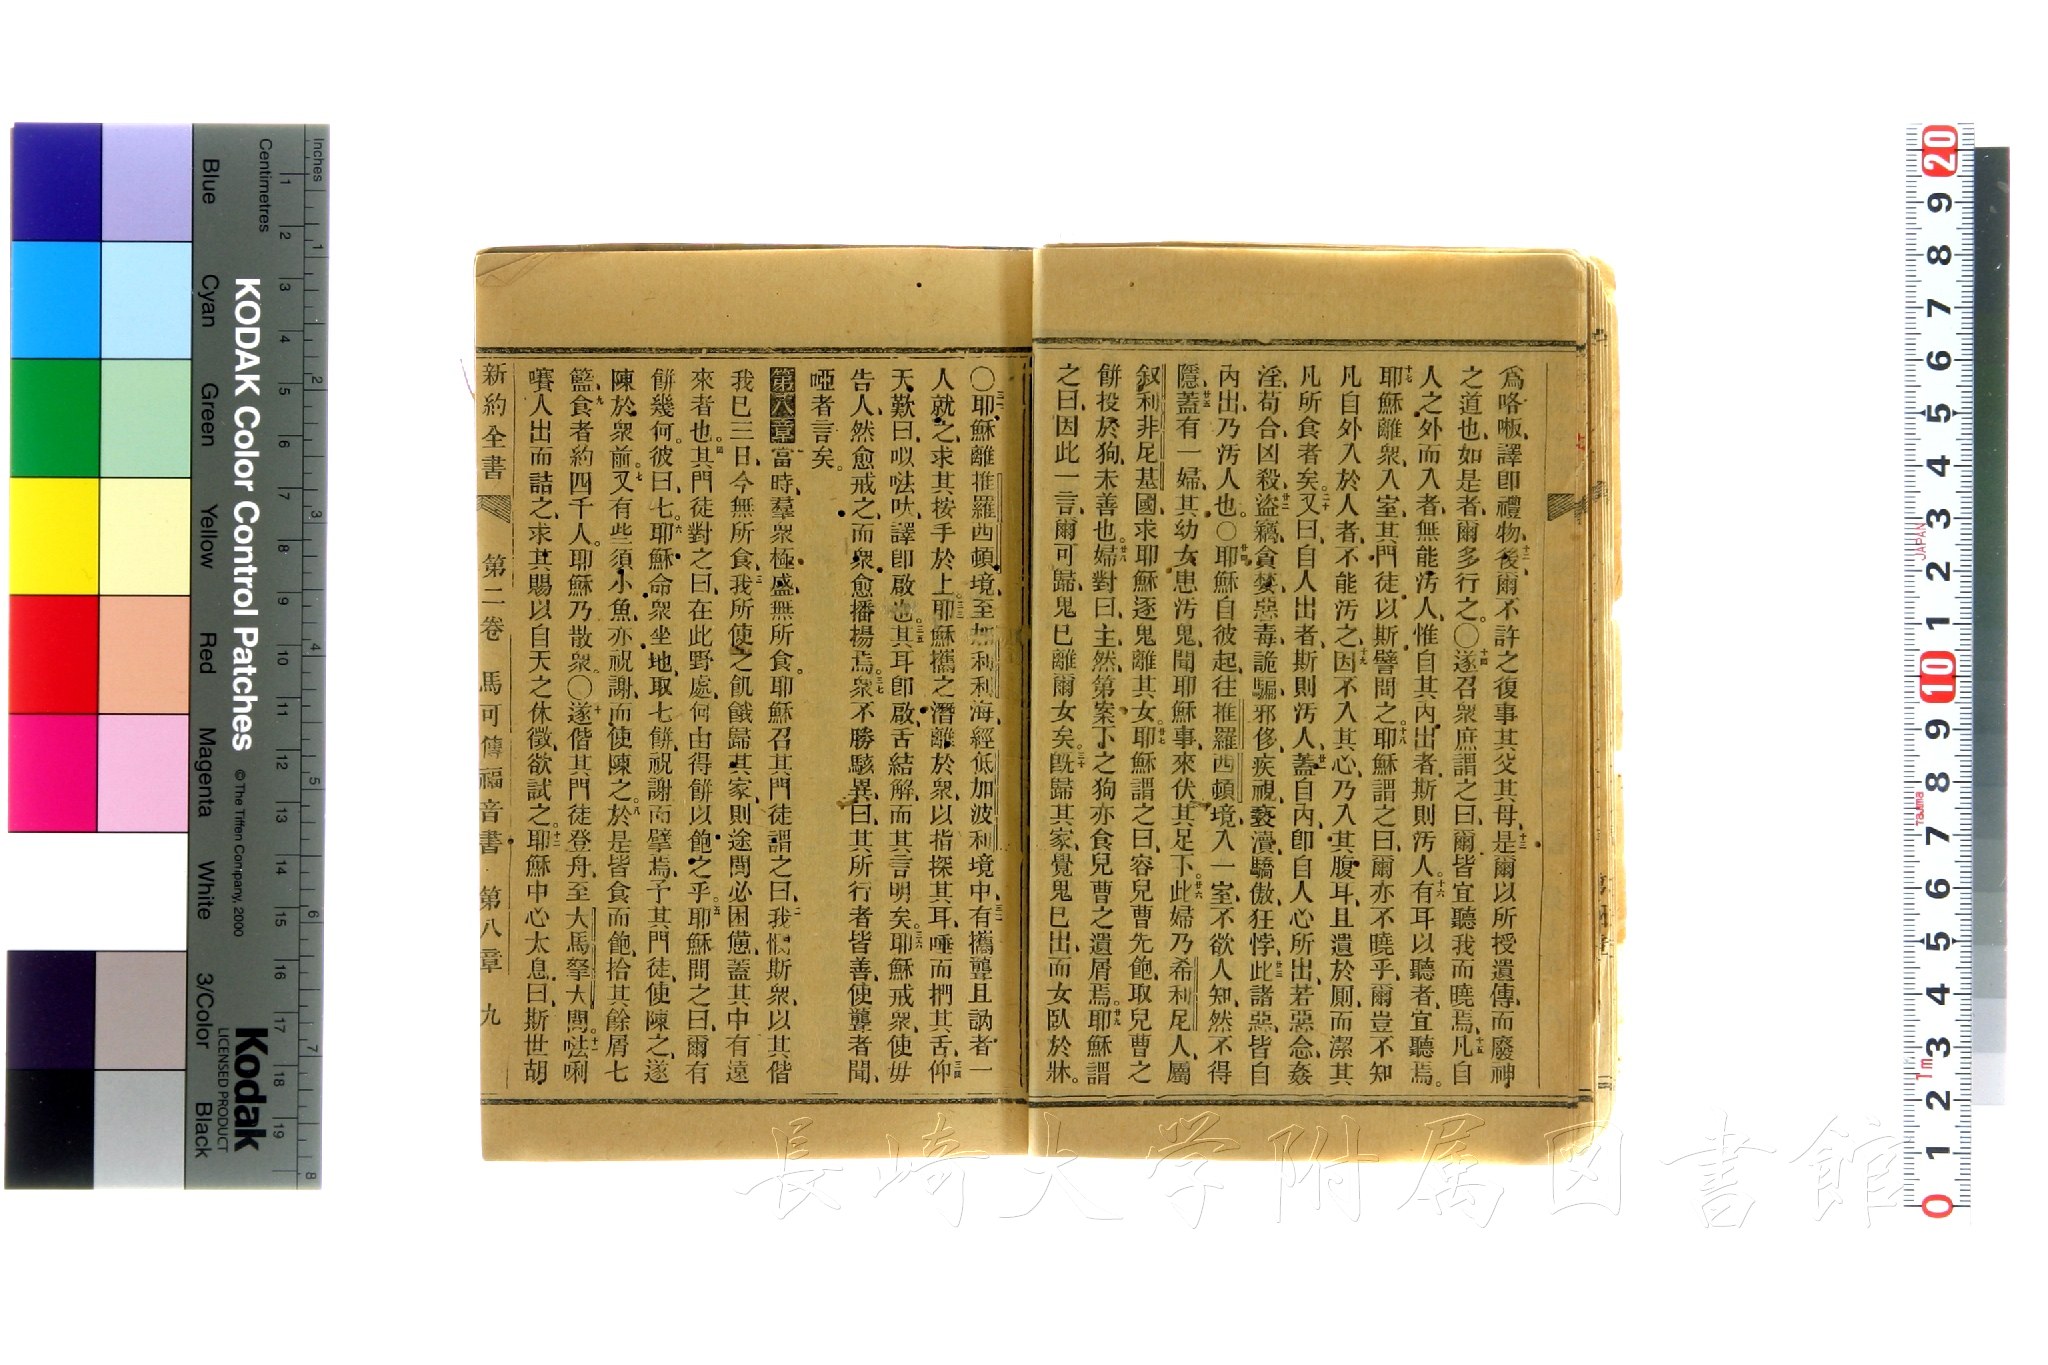 爲咯嘅、譯卽禮物、十二後爾不許之復事其父其母、十三是爾以所授遺傳、而廢神
之道也、如是者、爾多行之。〇十四遂召衆庶謂之曰、爾皆宜聽我而曉焉、十五凡自
人之外而入者、無能汚人、惟自其內出者、斯則汚人。十六有耳以聽者、宜聽焉。
十七耶穌離衆入室、其門徒以斯譬問之。十八耶穌謂之曰、爾亦不曉乎、爾豈不知
凡自外入於人者、不能汚之、十九因不入其心、乃入其腹耳、且遺於厠、而潔其
凡所食者矣。二十又曰、自人出者、斯則汚人、廿一蓋自內、卽自人心所出、若惡念、姦
淫、苟合、凶殺、廿二盜竊、貪婪、惡毒、詭騙、邪侈、疾視、褻瀆、驕傲、狂悖、廿三此諸惡、皆自
內出、乃汚人也。〇廿四耶穌自彼起、往推羅西頓境、入一室、不欲人知、然不得
隱、廿五蓋有一婦、其幼女患汚鬼、聞耶穌事、來伏其足下。廿六此婦乃希利尼人、屬
叙利非尼基國、求耶穌逐鬼離其女。廿七耶穌謂之曰、容兒曹先飽、取兒曹之
餅投於狗、未善也。廿八婦對曰、主然、第案下之狗、亦食兒曹之遺屑焉。廿九耶穌謂
之曰、因此一言、爾可歸、鬼已離爾女矣。三十旣歸其家、覺鬼已出、而女臥於牀。
〇三一耶穌離推羅西頓境、至加利利海、經低加波利境中、三二有攜聾且訥者一
人就之、求其按手於上。三三耶穌攜之、潛離於衆、以指探其耳、唾而捫其舌、三四仰
天歎曰、㕥呿吠、譯卽啟也。三五其耳卽啟、舌結解、而其言明矣。三六耶穌戒衆、使毋
告人、然愈戒之、而衆愈播揚焉。三七衆不勝駭異、曰、其所行者皆善、使聾者聞、
啞者言矣。
第八章 一當時、羣衆極盛無所食、耶穌召其門徒謂之曰、二我憫斯衆、以其偕
我已三日、今無所食、三我所使之飢餓歸其家、則途間必困憊、蓋其中有遠
來者也。四其門徒對之曰、在此野處、何由得餅以飽之乎。五耶穌問之曰、爾有
餅幾何。彼曰、七。六耶穌命衆坐地、取七餅、祝謝而擘焉、予其門徒、使陳之、遂
陳於衆前。七又有些須小魚、亦祝謝、而使陳之。八於是皆食而飽、拾其餘屑七
籃、九食者約四千人。耶穌乃散衆。〇十遂偕其門徒登舟、至大馬拏大。十一㗲唎
㘔人出而詰之、求其賜以自天之休徵、欲試之。十二耶穌中心太息曰、斯世胡
新約全書 第二卷 馬可傳福音書 第八章 九
長崎大学附属図書館
Blue
Cyan
Green
Yellow
Red
Magenta
White
3/Color
Black
KODAK Color Control Patches
© The Tiffen Company, 2000
Kodak
LICENSED PRODUCT
Inches
Centimetres
1 2 3 4 5 6 7 8 9 10 11 12 13 14 15 16 17 18 19
1 2 3 4 5 6 7 8
20 9 8 7 6 5 4 3 2 1 10 9 8 7 6 5 4 3 2 1 0
JAPAN
Tajima